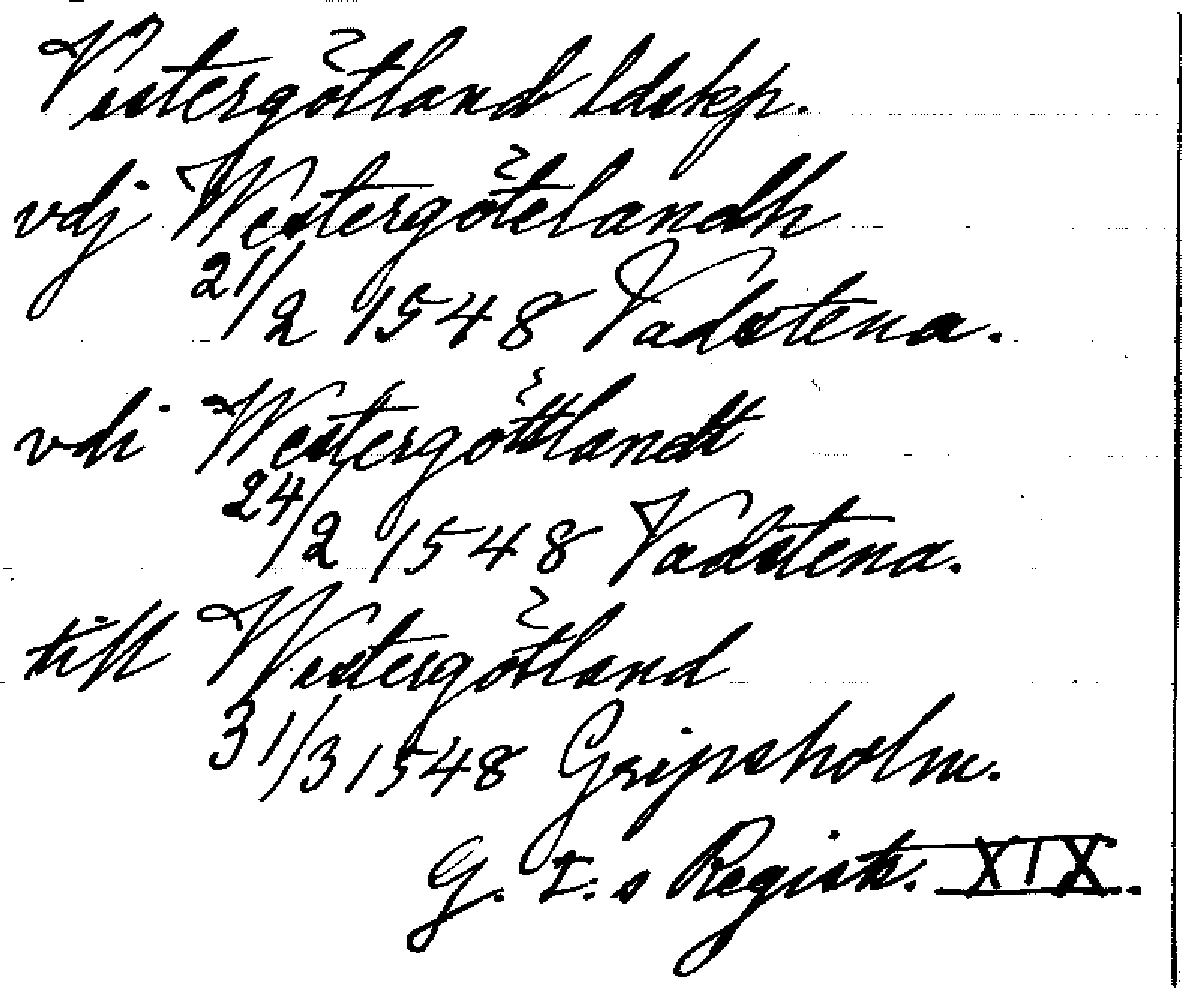 Västergötland ldskp.
vdj Westergötelandh
21/2 1548 Vadstena.
vdi Westergöttlandt
24/2 1548 Vadstena.
till Westergötland
31/3 1548 Gripsholm.
G. I.s Registr. XIX.